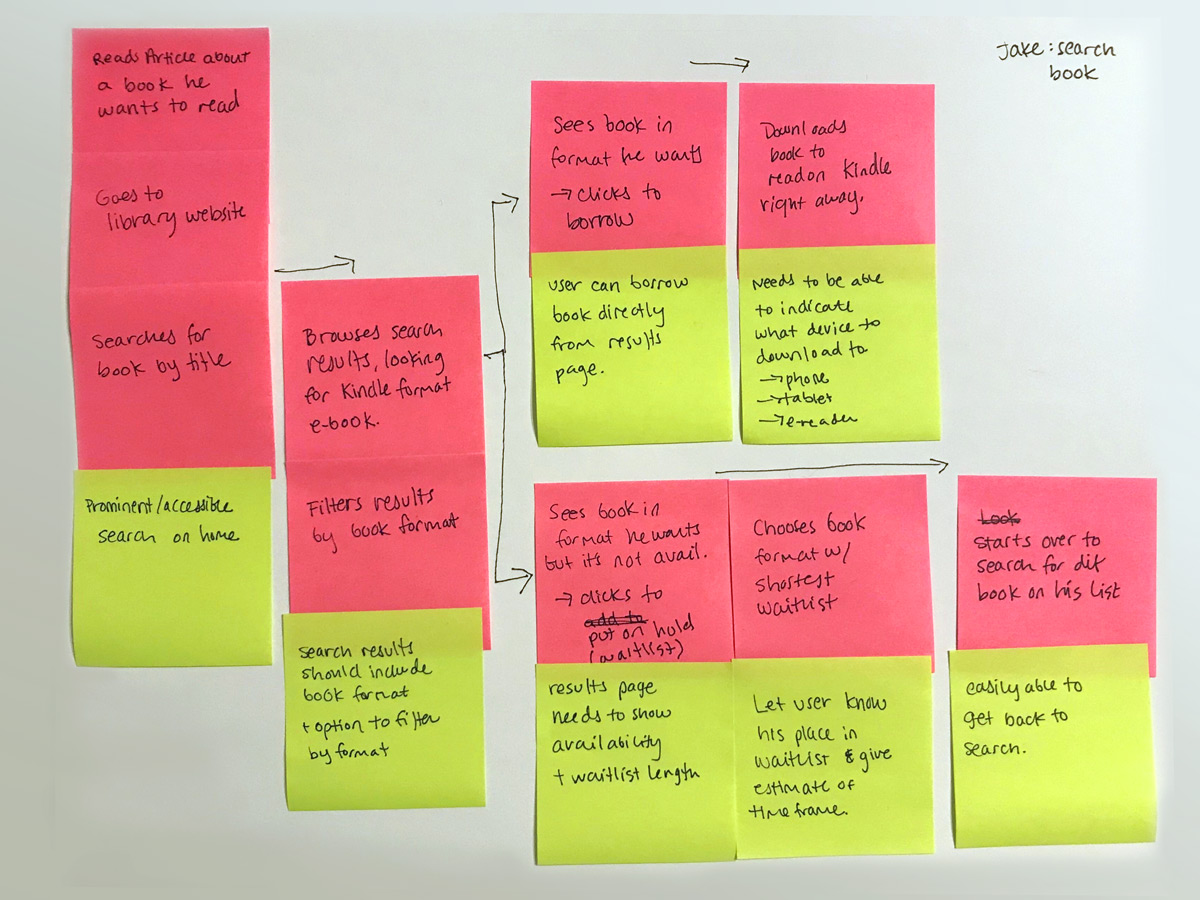 Jake: search
book
Reads Article about
a book he
wants to read
Goes to
library website
Searches for
book by title
Prominent/accessible
search on home
Browses search
results, looking
for Kindle format
e-book.
Filters results
by book format
search results
should include
book format
+ option to filter
by format
Sees book in
format he wants
→ clicks to
borrow
user can borrow
book directly
from results
page.
Downloads
book to
read on Kindle
right away.
Needs to be able
to indicate
what device to
download to
→ phone
→ tablet
→ e-reader
Sees book in
format he wants
but it's not avail.
→ clicks to
add to
put on hold
(waitlist)
results page
needs to show
availability
+ waitlist length
Chooses book
format w/
shortest
waitlist
Let user know
his place in
waitlist & give
estimate of
timeframe.
Look
starts over to
search for dif
book on his list
easily able to
get back to
search.